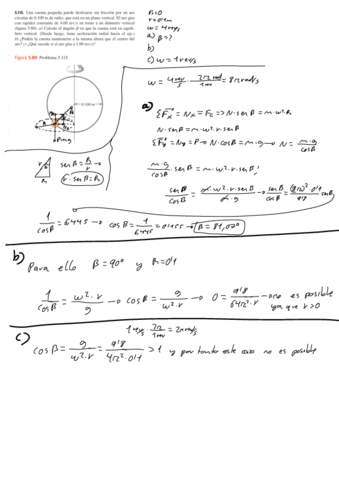 5.118. Una cuenta pequeña puede deslizarse sin fricción por un aro
circular de 0.100 m de radio, que está en un plano vertical. El aro gira
con rapidez constante de 4.00 rev/s en torno a un diámetro vertical
(figura 5.80). a) Calcule el ángulo β en que la cuenta está en equilibrio
vertical. (Desde luego, tiene aceleración radial hacia el eje.)
b) ¿Podría la cuenta mantenerse a la misma altura que el centro del
aro? c) ¿Qué sucede si el aro gira a 1.00 rev/s?
Figura 5.80 Problema 5.118.
r=0'1m
w=4rev/s
a) β=?
b)
c) w=1rev/s
w = 4 rev/s · 2π rad/1 rev = 8π rad/s
a)
ΣFx = Nx = Fc => N·senβ = m·w²·R
N·senβ = m·w²·r·senβ
ΣFy = Ny = P → N·cosβ = m·g → N = m·g/cosβ
m·g/cosβ · senβ = m·w²·r·senβ;
0.100 m
P=m·g
senβ = R/r
r·senβ = R
1/cosβ = 6'445 → cosβ = 1/6'445 = 0'155 → β = 81,07º
b)
Para ello β=90º y
1/cosβ = w²·r/g → cosβ = g/w²·r → 0 = 9'8/64π²·r → no es posible
ya que r>0
c)
1 rev/s · 2π/1 rev = 2π rad/s
cosβ = g/w²·r = 9'8/4π²·0'1 > 1 y por tanto este caso no es posible